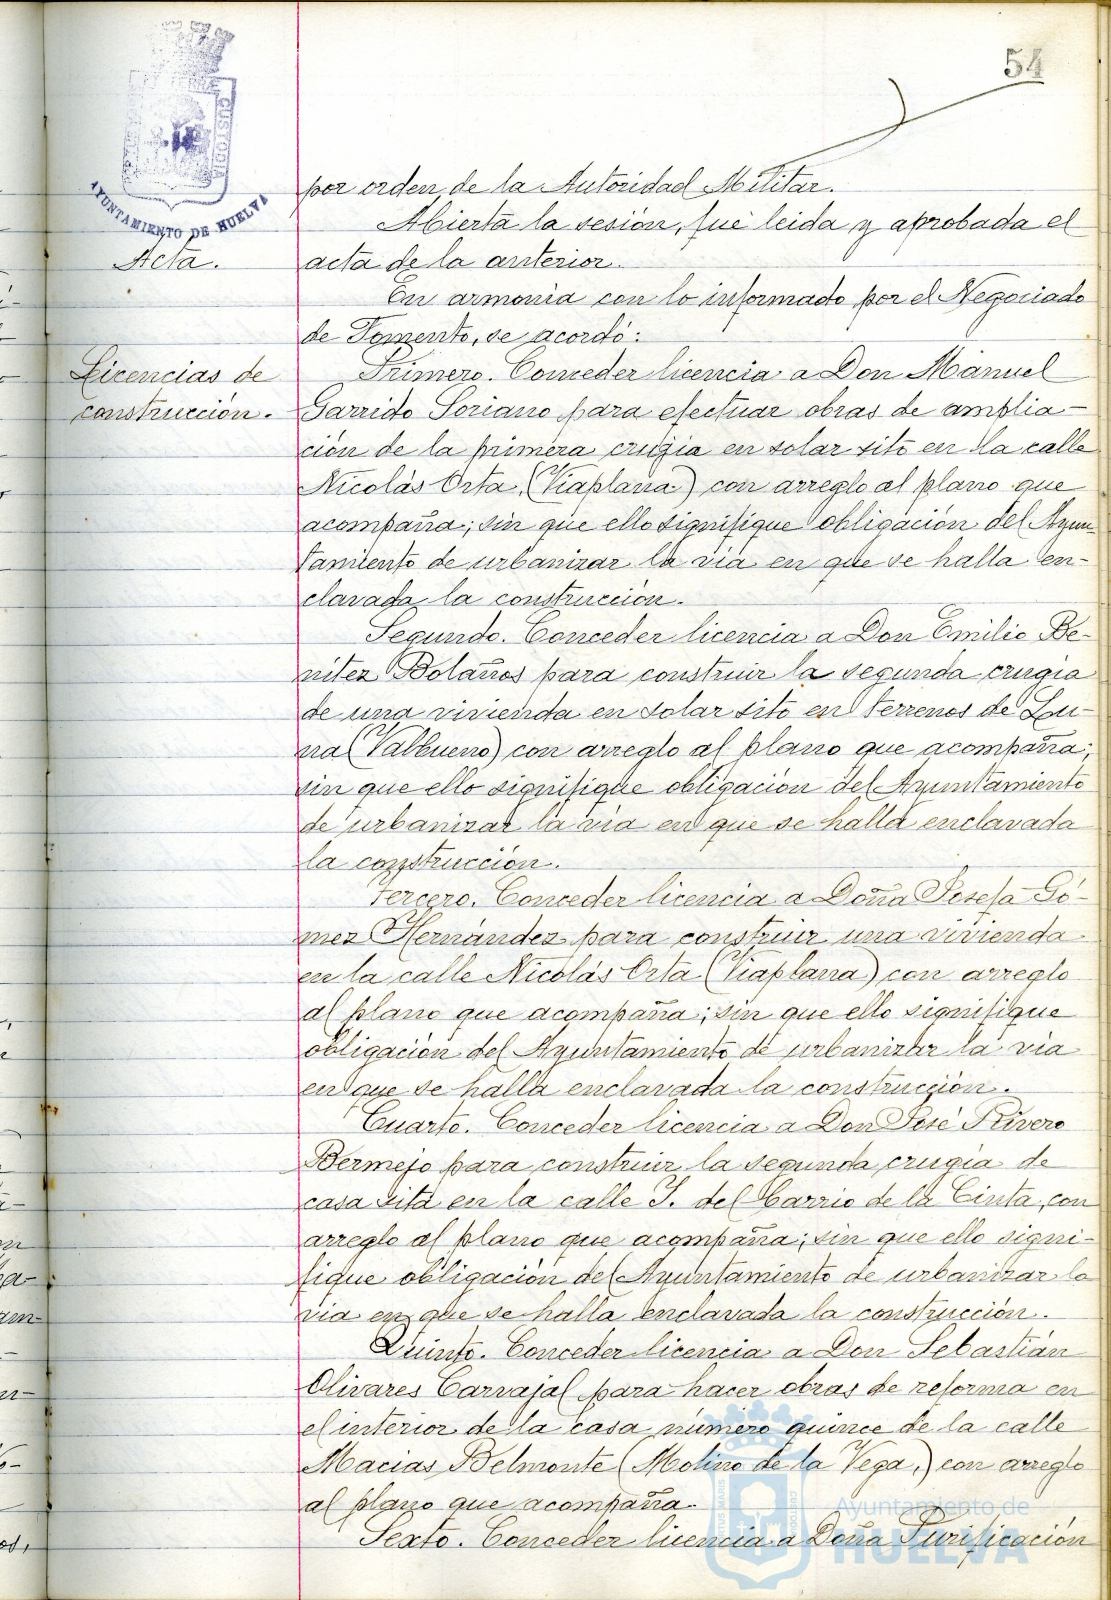 54
AYUNTAMIENTO DE HUELVA
por orden de la Autoridad Militar.
Abierta la sesión, fué leida y aprobada el
Acta.
acta de la anterior.
En armonía con lo informado por el Negociado
de Fomento, se acordó:
Licencias de
construcción.
Primero. Conceder licencia a Don Manuel
Garrido Soriano para efectuar obras de amplia-
ción de la primera crugía en solar sito en la calle
Nicolás Orta, (Viaplana) con arreglo al plano que
acompaña; sin que ello signifique obligación del Ayun-
tamiento de urbanizar la vía en que se halla en-
clavada la construcción.
Segundo. Conceder licencia a Don Emilio Be-
nitez Bolaños para construir la segunda crugía
de una vivienda en solar sito en terrenos de Lu-
na (Valbueno) con arreglo al plano que acompaña;
sin que ello signifique obligación del Ayuntamiento
de urbanizar la vía en que se halla enclavada
la construcción.
Tercero. Conceder licencia a Doña Josefa Gó-
mez Hernández para construir una vivienda
en la calle Nicolás Orta (Viaplana) con arreglo
al plano que acompaña; sin que ello signifique
obligación del Ayuntamiento de urbanizar la vía
en que se halla enclavada la construcción.
Cuarto. Conceder licencia a Don José Rivero
Bermejo para construir la segunda crugía de
casa sita en la calle J. del barrio de la Cinta, con
arreglo al plano que acompaña; sin que ello signi-
fique obligación del Ayuntamiento de urbanizar la
vía en que se halla enclavada la construcción.
Quinto. Conceder licencia a Don Sebastián
Olivares Carvajal para hacer obras de reforma en
el interior de la casa número quince de la calle
Macias Belmonte (Molino de la Vega,) con arreglo
al plano que acompaña.
Sexto. Conceder licencia a Doña Purificación
Ayuntamiento de
HUELVA